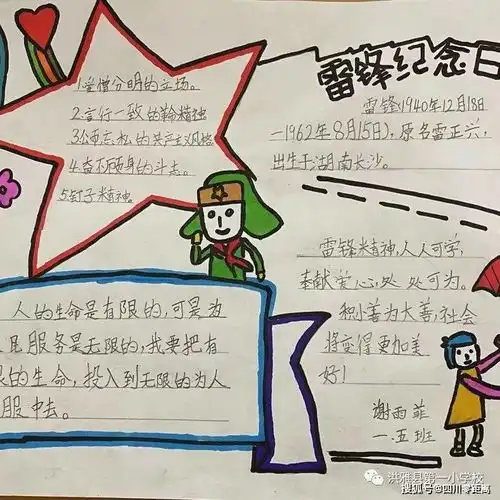 1.爱憎分明的立场。
2.言行一致的革命精神
3.公而忘私的共产主义风格
4.奋不顾身的斗志。
5.钉子精神。
雷锋纪念日
雷锋(1940年12月18日
-1962年8月15日),原名雷正兴,
出生于湖南长沙。
雷锋精神,人人可学,
奉献爱心,处处可为。
积小善为大善,社会
将变得更加美
好!
谢雨菲
一.五班
人的生命是有限的,可是为
民服务是无限的,我要把有
限的生命,投入到无限的为人
服中去。
洪雅县第一小学校
搜狐号@四川零距离